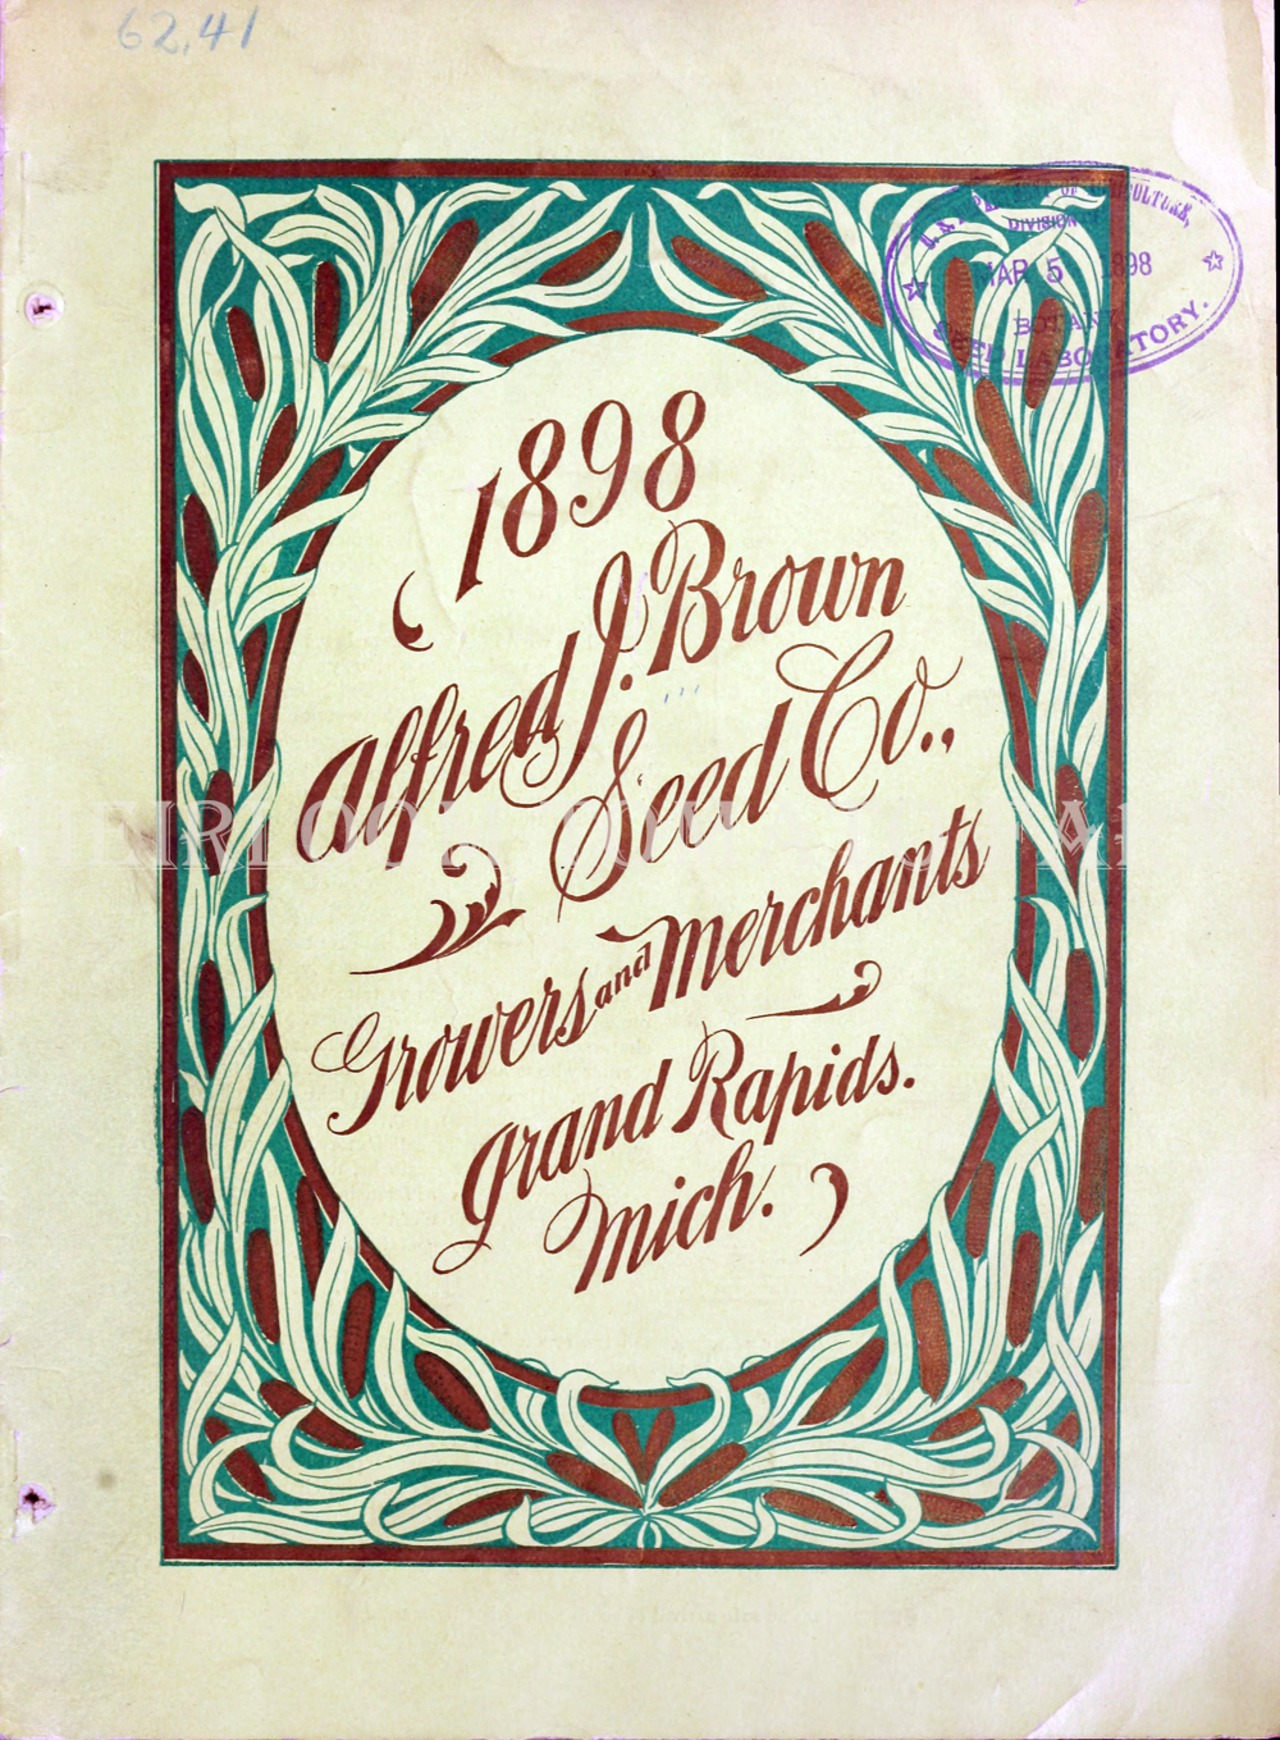 62.41
U.S. DEPARTMENT OF AGRICULTURE,
DIVISION OF
MAR 5 1898
BOTANY
SEED LABORATORY.
1898
Alfred J. Brown
Seed Co.,
Growers and Merchants
Grand Rapids.
Mich.
HEIRLOOM